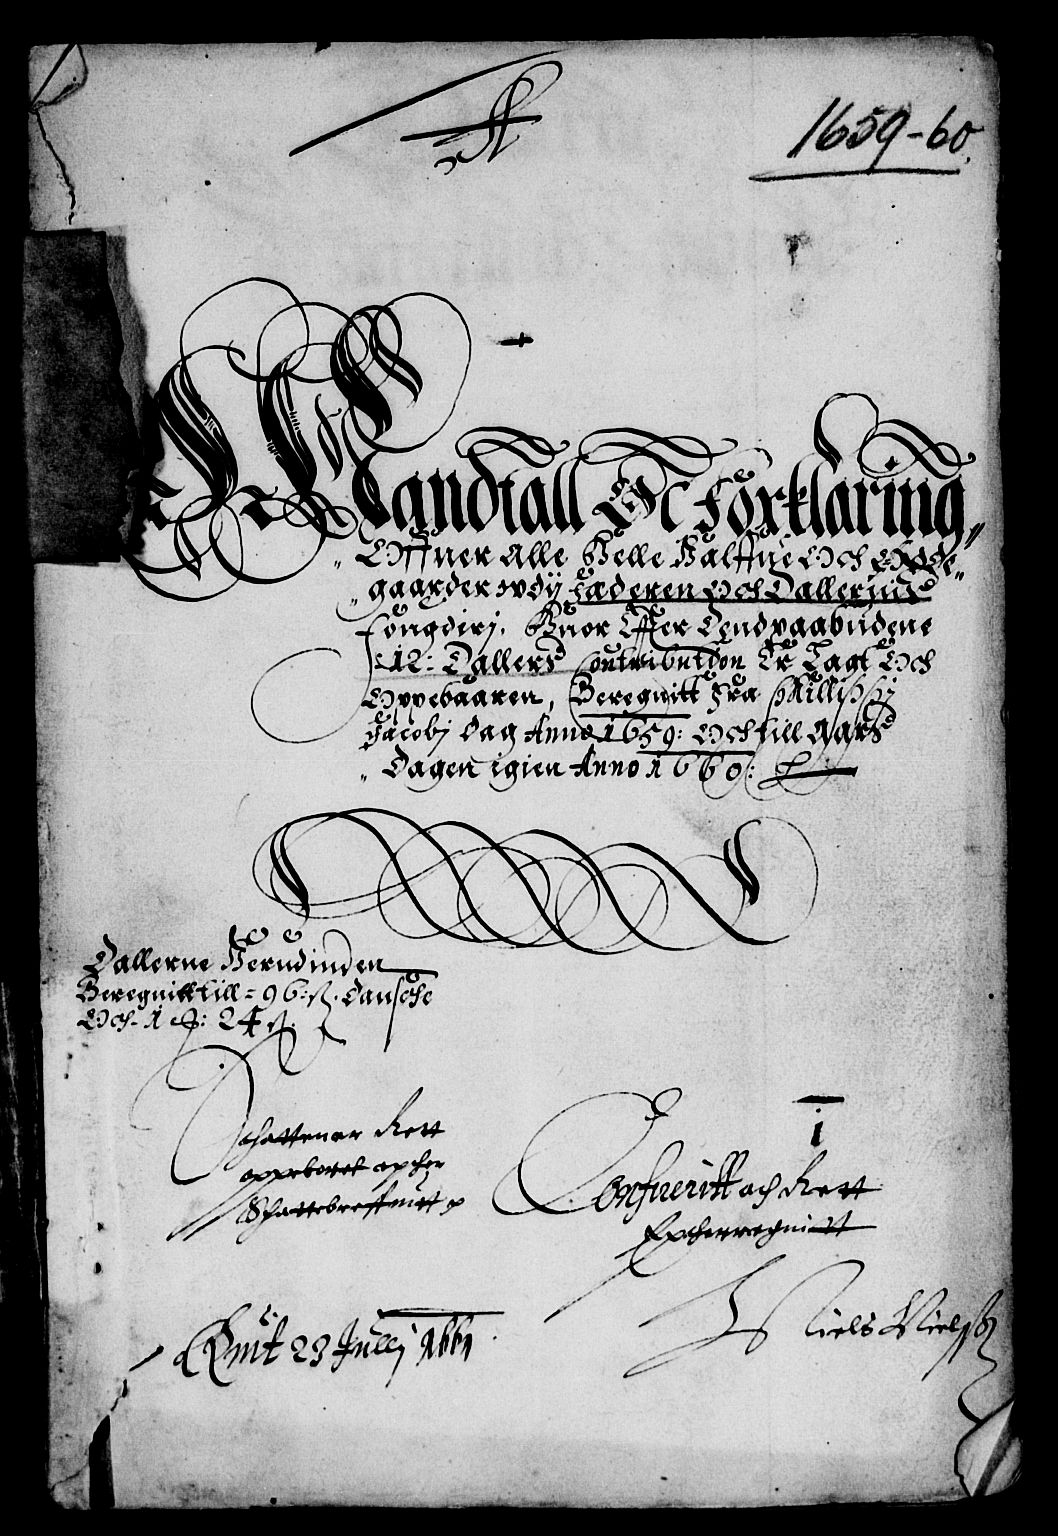 1659-60.
Mandtall Oc Forklaring,
Offuer Alle Helle Halffue Och Ødde-
gaarder wdj Laderen Och Dallernis
Fougdirj. Huor Effter Dend paabudene
:12: Dallers Contribution Er Lagt Och
Oppebaaren, Beregnitt Fra Phillippj
Jacobj Dag Anno 1659: Och till Aars
Dagen igien Anno 1660:
Dallerne Herudinden
Beregnitt till = 96: ß. Dansche
Och 1 24 ß.
Schattener Rett
oppeboret opcher
Schattebreffuitt
Confueritt och Rett
i
Quit 23 Jullj 1661
Niels Niels